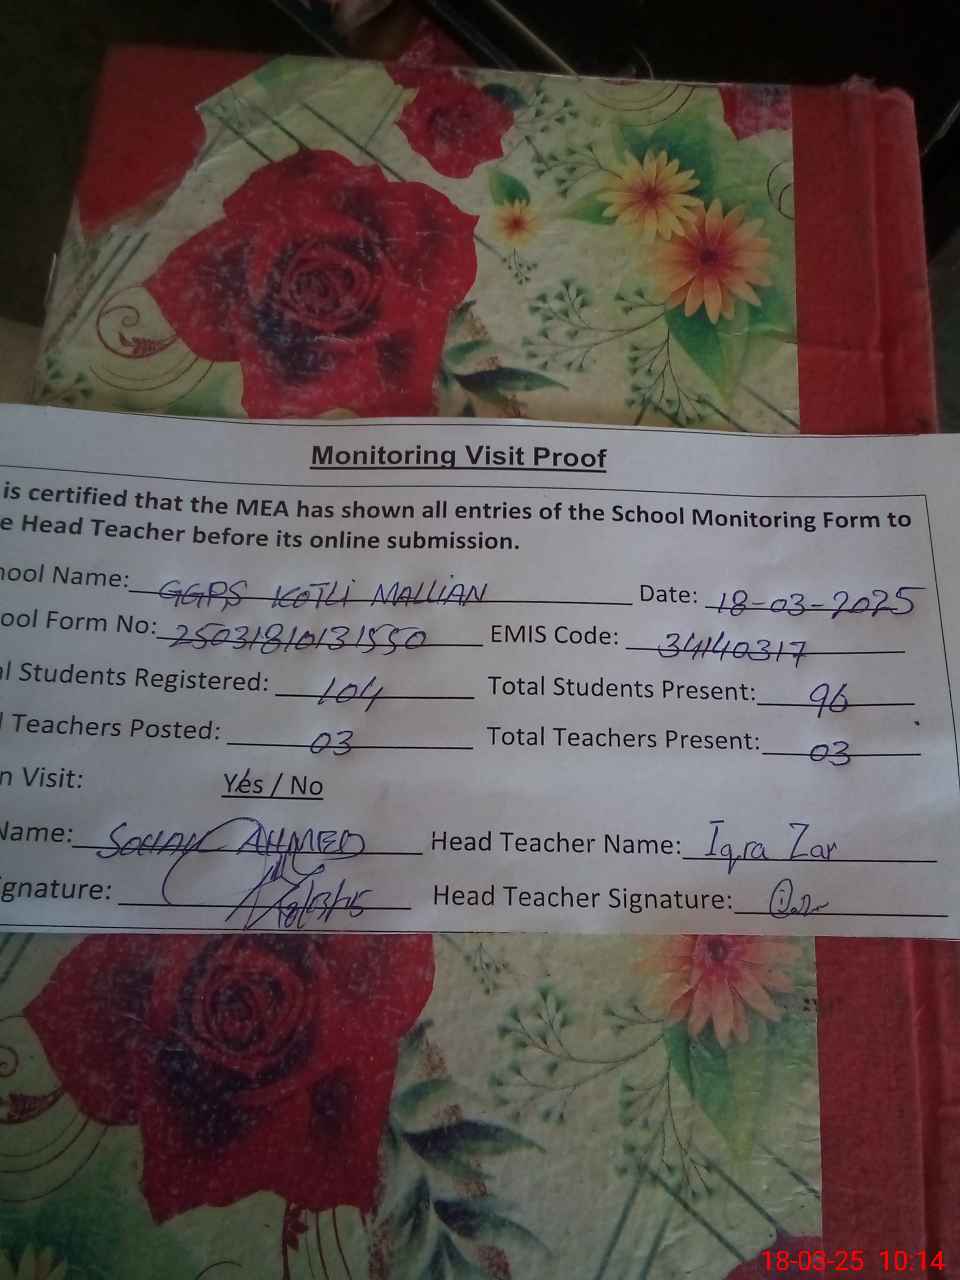 Monitoring Visit Proof
is certified that the MEA has shown all entries of the School Monitoring Form to
e Head Teacher before its online submission.
hool Name: GGPS KOTLI MALLIAN Date: 18-03-2025
ool Form No: 25031810131550 EMIS Code: 34140317
al Students Registered: 104 Total Students Present: 96
l Teachers Posted: 03 Total Teachers Present: 03
n Visit: Yes / No
Name: SOHAIL AHMED Head Teacher Name: Iqra Zar
ignature: 18/03/25 Head Teacher Signature:
18-03-25 10:14